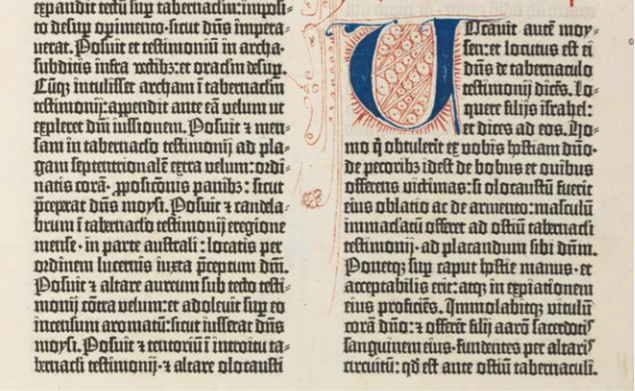 expandit tectū sup tabernaclm: imposi=
to desup opimento: sicut dn̄s impera=
uerat. Posuit et testimoniū in archa:
subditis infra vectibꝫ: et oraclm desup.
Cūqꝫ intulisset archam ī tabernaclm
testimonij: appendit ante eā velum ut
expleret dn̄i iussionem. Posuit ⁊ men=
sam in tabernaclo testimonij ad pla=
gam septentrionalē extra velum: ordi=
natis corā· ꝓposicōnis panibꝫ: sicut
p̄ceperat dn̄s moysi. Posuit ⁊ candela=
brum ī tabernaclo testimonij eregione
mense· in parte australi: locatis per
ordinem lucernis iuxta p̄ceptum dn̄i.
Posuit ⁊ altare aureum sub tecto testi=
monij cōtra velum: et adoleuit sup eo
incensum aromatū: sicut iusserat dn̄s
moysi. Posuit ⁊ tentoriū ī introitu ta=
bernacli testimonij· ⁊ altare olocausti
Vocauit autē moy=
sen: et locutus est ei
dn̄s de tabernaculo
testimonij dicēs. Lo=
quere filijs israhel:
et dices ad eos. Ho=
mo q̄ obtulerit ex vobis hostiam dn̄o·
de pecoribꝫ idest de bobus et ouibus
offerens victimas: si olocaustū fuerit
eius oblatio ac de armento: masculū
immaculatū offeret ad ostiū tabernacli
testimonij· ad placandum sibi dn̄m.
Ponetqꝫ sup caput hostie manus· et
acceptabilis erit: atqꝫ in expiationem
eius proficiēs. Immolabitqꝫ vitulū
corā dn̄o: ⁊ offerēt filij aarō sacerdotꝭ
sanguinem eius· fundentes per altarꝭ
circuitū: qd̄ est ante ostiū tabernaculi.